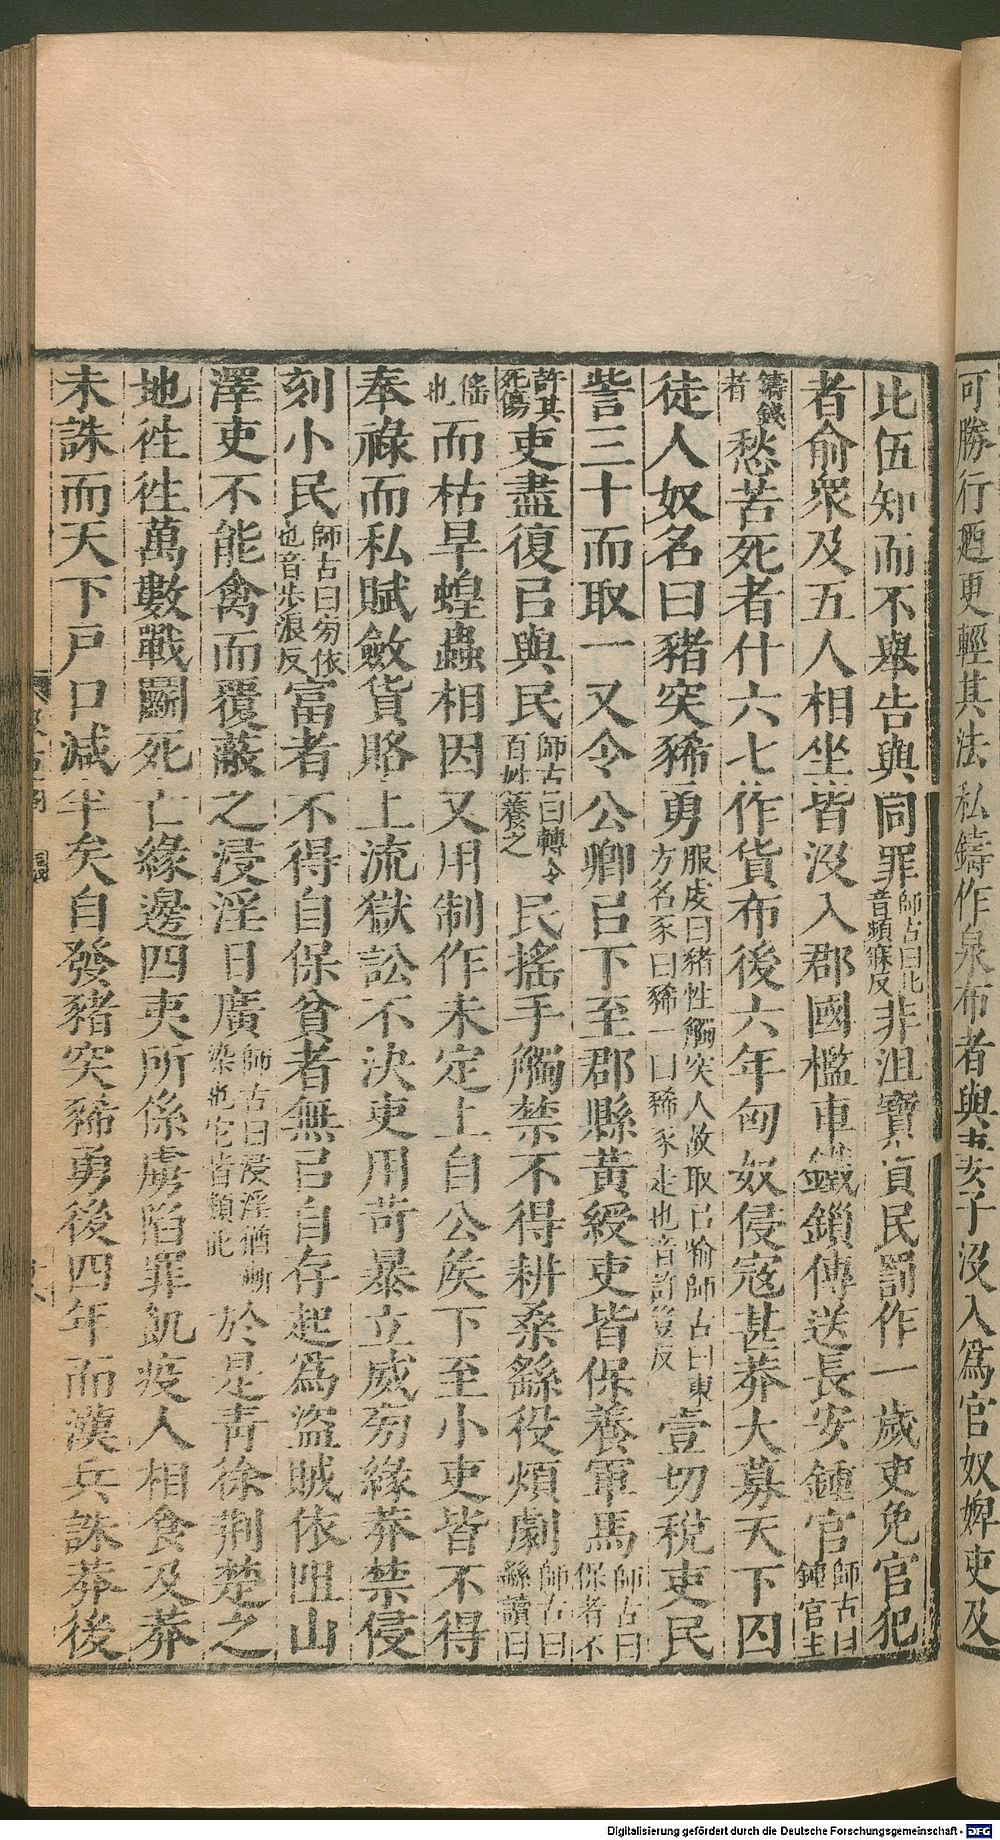 可勝行廼更輕其法私鑄作泉布者與妻子没入爲官奴婢吏及
比伍知而不舉告與同罪師古曰比音頻寐反非沮寶貨民罰作一歲吏免官犯
者俞衆及五人相坐皆没入郡國檻車鐵鎖傳送長安鍾官師古曰鍾官主
鑄錢者愁苦死者什六七作貨布後六年匈奴侵寇甚莽大募天下囚
徒人奴名曰豬突豨勇服虔曰豬性觸突人故取㠯喻師古曰東方名豕曰豨一曰豨豕走也音許豈反壹切稅吏民
訾三十而取一又令公卿㠯下至郡縣黃綬吏皆保養軍馬師古曰保者不
許其死傷吏盡復㠯與民師古曰轉令百姓養之民搖手觸禁不得耕桑繇役煩劇師古曰繇讀曰
傜也而枯旱蝗蟲相因又用制作未定上自公侯下至小吏皆不得
奉祿而私賦斂貨賂上流獄訟不決吏用苛暴立威旁緣莽禁侵
刻小民師古曰旁依也音步浪反富者不得自保貧者無㠯自存起爲盜賊依阻山
澤吏不能禽而覆蔽之浸淫日廣師古曰浸淫猶漸染也它皆類此於是青徐荆楚之
地往往萬數戰鬭死亡緣邊四夷所係虜陷罪飢疫人相食及莽
未誅而天下戶口減半矣自發豬突豨勇後四年而漢兵誅莽後
Digitalisierung gefördert durch die Deutsche Forschungsgemeinschaft - DFG